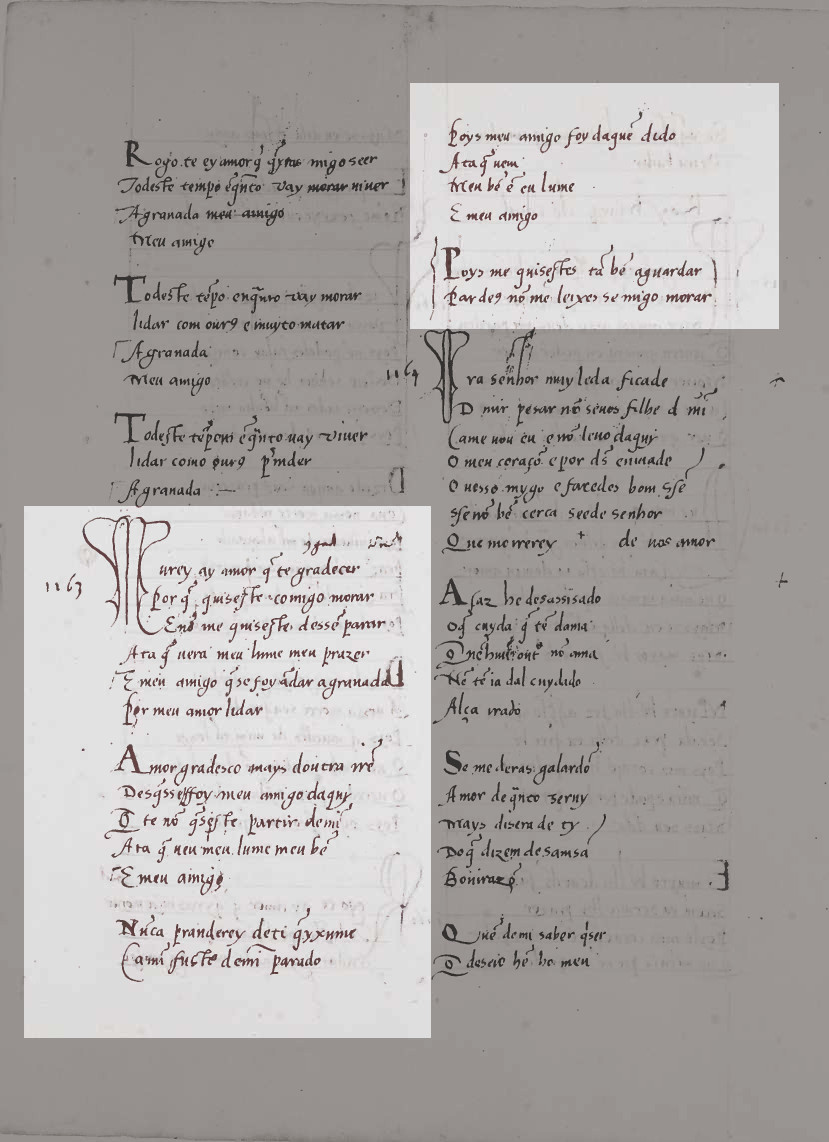 Rogo te ey amor q̄ q̄yras migo seer
Todeste tempo eq̄nto vay morar viuer
Agranada meu amigo
Meu amigo
Todeste tēpo enq̄nto vay morar
lidar com ourꝯ e muyto matar
Agranada
Meu amigo
Todeste tēpom eq̄nto uay viuer
lidar como ourꝯ p̄nder
Agranada
1163
Murey ay amor q̄ te gradecer
Por q̄ quiseste comigo morar
E nō me quiseste desse parar
Ata q̄ uera meu lume meu prazer
E meu amigo q̄ se foy ādar agranada
Por meu amor lidar
Amor gradesco mays doutra rrē
Desq̄sseffoy meu amigo daquy
Q̄ te nō q̄seste partir demī
Ata q̄ ueu meu lume meu bē
E meu amigo
Nūca pranderey deti q̄yxume
Ca amī fuste demī parado
Poys meu amigo foy daquē dido
Ata q̄ uem
Meu bē ē eu lume
E meu amigo
Poys me quisestes tā bē aguardar
Par deꝯ nō me leixes se migo morar
1164
Ora senhor muy leda ficade
D mir pesar nō senos filhe d mī
Came uou eu e nō leuo daquy
O meu coraçō e por ds̄ enuiade
O uosso mygo e faredes bom ssē
sse nō bē cerca seede senhor
Que morrerey de uos amor
Assaz he desassisado
Oq̄ cuyda q̄ tē dama
nō ama
Nē tē ia dal cuydado
Alça irado
Se me deras galardō
Amor de q̄nto seruy
Mays disera de ty
Doq̄ dizem de Samsā
Bonirazō
Quē demi saber q̄ser
Q̄ deseio hē ho meu